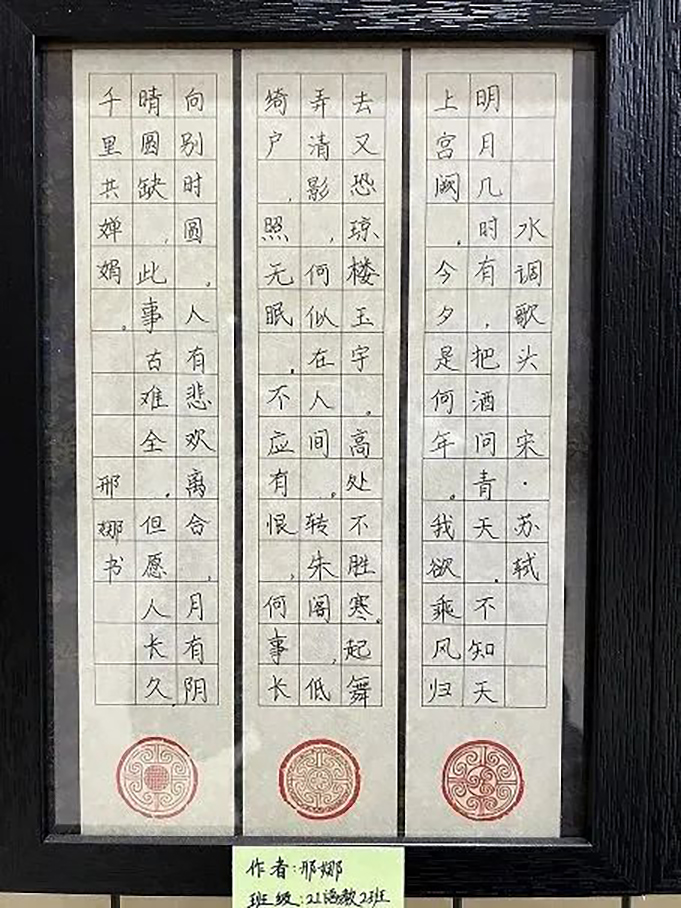 水调歌头 宋·苏轼
明月几时有,把酒问青天.不知天
上宫阙,今夕是何年。我欲乘风归
去又恐琼楼玉宇。高处不胜寒。起舞
弄清影,何似在人间。转朱阁,低
绮户,照无眠.不应有恨,何事长
向别时圆。人有悲欢离合,月有阴
晴圆缺,此事古难全.但愿人长久.
千里共婵娟。 邢娜书
作者:邢娜
班级:21语教2班